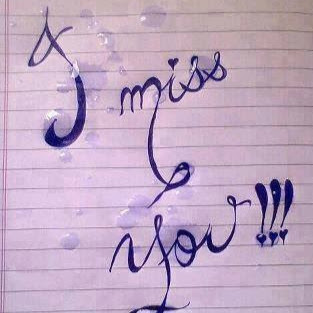 I miss
You!!!